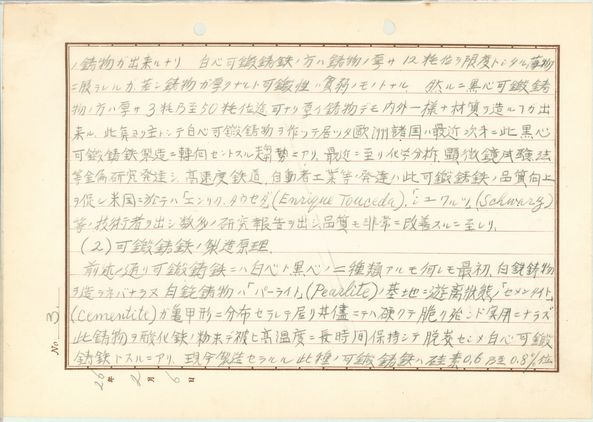 ノ鋳物ガ出来ルナリ 白心可鍛鋳鉄ノ方ハ鋳物ノ厚サ12粍位ヲ限度トシタル薄物
ニ限ラレルガ、若シ鋳物ガ厚クナルト可鍛性ハ貧弱ノモノトナル 然ルニ黒心可鍛鋳
物ノ方ハ厚サ3粍乃至50粍位迄可ナリ厚イ鋳物デモ内外一様ナ材質ヲ造ル事ガ出
来ル、此点ヨリ主トシテ白心可鍛鋳物ヲ作ツテ居ツタ欧洲諸国ハ最近次第ニ此黒心
可鍛鋳鉄製造ニ転向セントスル趨勢ニアリ、最近ニ至リ化学分析、顕微鏡試験法
等金属研究発達シ、高速度鉄道、自動車工業等ノ発達ハ此可鍛鋳鉄ノ品質向上
ヲ促シ米国ニ於テハ「エンリク、タウセダ」(Enrique Touceda)、「シユワルツ」(Schwarz)
等ノ技術者ヲ出シ数多ノ研究報告ヲ出シ品質モ非常ニ改善スルニ至レリ、
(2) 可鍛鋳鉄ノ製造原理、
前述ノ通リ可鍛鋳鉄ニハ白心ト黒心ノ二種類アルモ何レモ最初、白銑鋳物
ヲ造ラネバナラヌ 白銑鋳物ハ「パーライト」(Pearlite)ノ基地ニ遊離状態ノ「セメンタイト」
(Cementite)ガ亀甲形ニ分布セラレテ居リ其儘ニテハ硬クテ脆ク殆ンド実用ニナラズ
此鋳物ヲ酸化鉄ノ粉末デ被ヒ高温度ニ長時間保持シテ脱炭セシメ白心可鍛
鋳鉄トスルニアリ、現今製造セラルル此種ノ可鍛鋳鉄ハ硅素0.6乃至0.8%位
No. 3
26年 2月 6日